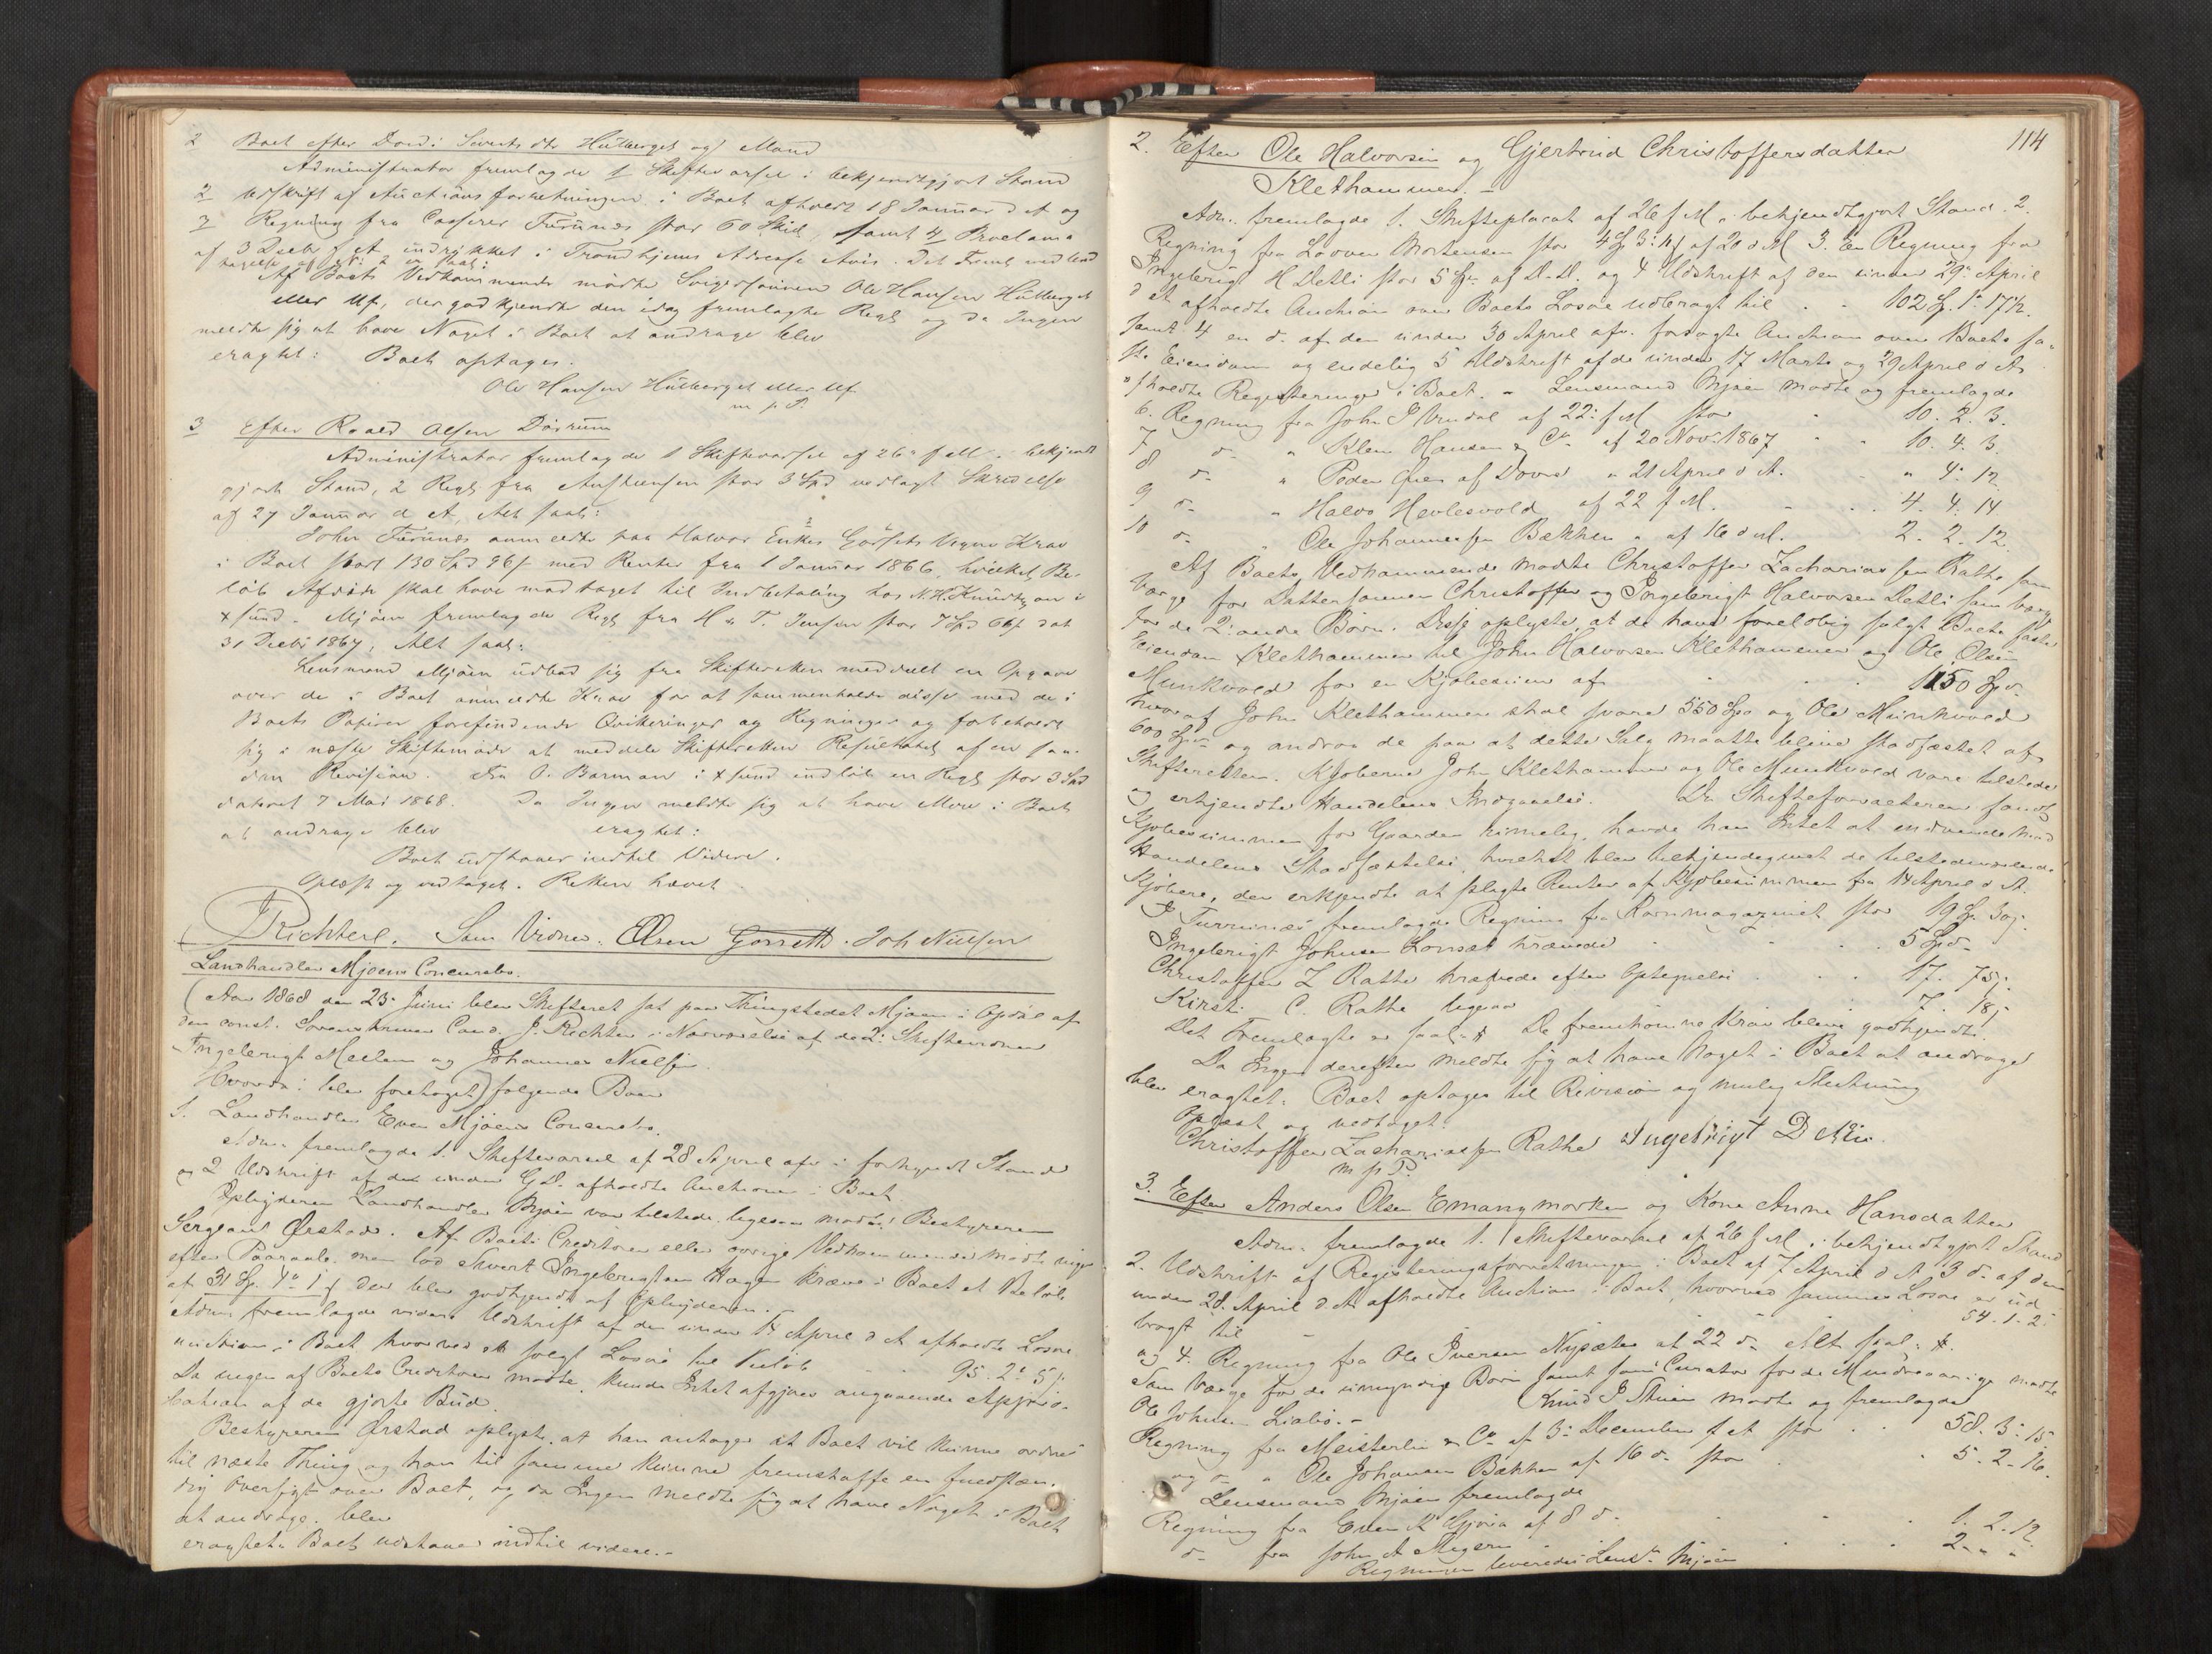 2 Boet efter Dordi Siverts dtr Hülberget og Mand
Administrator fremlagde 1 Skiftevarsel i bekjendtgjort Stand
2 Udskrift af Auctions forretningen i Boet afholdt 18 Januar d A og
3 Regning fra Casserer Furunes stor 60 Skill, samt 4 Proclama
af 3 Decbr f A indrykket i Trondhjems Adresse Avis. Det Freml
Af Boets Vedkommende mødte Svigersønnen Ole Hansen Hülberget
eller Uf, der godkjendte den idag fremlagte Regl og da Ingen
meldte sig at have Noget i Boet at andrage blev
eragtet: Boet optages.
Ole Hansen Hülberget eller Uf
m p P.
3 Efter Roald Olsen Dörrüm
Administrator fremlagde 1 Skiftevarsel af 26 f M i bekjendt
gjort Stand, 2 Regl fra stor 3 Spd vedlagt Skrivelse
af 27 Januar d A, Alt saal:
John Furunes anmeldte paa Halvor Enkes Vegne Krav
i Boet stort 130 Spd 96 s med Renter fra 1 Januar 1866, hvilket Be-
løb Afdøde skal have modtaget til Indbetaling hos N. H. Knudtzon i
X sund. Mjøen fremlagde Regl fra H & T. Jensen stor 7 Spd 66 s dat
31 Decbr 1867, Alt saal:
Lensmand Mjøen udbad sig fra Skifteretten meddelt en Opgave
over de i Boet anmeldte Krav for at sammenholde disse med de i
Boets Papirer forefindende Qvitteringer og Regninger og forbeholdt
sig i næste Skiftemøde at meddele Skifteretten Resultatet af en saa-
dan Revision. Fra O. Barman i X sund indløb en Regl stor 3 Spd
dateret 7 Mai 1868. Da Ingen meldte sig at have Mere i Boet
at andrage blev eragtet:
Boet udstaaer indtil Videre.
Oplæst og vedtaget. Retten hævet.
J Richter. Som Vidner. Olsen Gorseth. Joh Nielsen
Landhandler Mjøens Concursbo.
Aar 1868 den 23 Juni blev Skifteret sat paa Thingstedet Mjøen i Opdal af
den const. Sorenskriver Cand. J. Richter i Nærværelse af de 2: Skiftevidner
Ingebrigt Meslem og Johannes Nielsen.
Hvorda: blev foretaget følgende Boer
1. Landhandler Even Mjøens Concursbo.
Adm. fremlagde 1. Skiftevarsel af 28 April afv. i forkyndt Stand
og 2 Udskrift af den under G.D. afholdte Auction i Boet.
Oplyderen Landhandler Mjøen var tilstede, ligesom mødte Bestyreren
Sergeant Ørstad. Af Boets Creditorer eller øvrige Vedkommende mødte ingen
efter Paaraab, men lod Sivert Ingebrigtsen Hagen kræve i Boet et Beløb
af 31 Sp. 4 1 s der blev godkjendt af Oplyderen.
Adm. fremlagde videre Udskrift af den under 14 April d A afholdte Løsøre
auction i Boet hvorved er solgt Løsøre til Beløb 95. 2. 5 s.
Da ingen af Boets Creditorer mødte, kunde Intet afgjøres angaaende Appro-
bation af de gjorte Bud.
Bestyreren Ørstad oplyste, at han antager at Boet vil kunne ordnes
til næste Thing og han til samme kunne fremskaffe en fuldstæn-
dig Oversigt over Boet, og da Ingen meldte sig at have Noget i Boet
at andrage, blev
eragtet: Boet udstaaer indtil videre.-
114
2. Efter Ole Halvorsen og Gjertrud Christoffersdatter
Klethammer. -
Adm. fremlagde 1. Skifteplacat af 26 f M i bekjendtgjort Stand. 2.
Regning fra Mortensen stor 4 Sp 3: 11 s af 20 d M 3. En Regning fra
Ingebrigt H Detli stor 5 Sp. af D.D. og 4 Udskrift af den under 29 April
d A afholdte Auction over Boets Løsøre udbragt til 102 Sp. 1. 17½.
samt 4 en do. af den under 30 April afv. forsøgte Auction over Boets fa-
ste Eiendom og endelig 5 Udskrift af de under 17 Marts og 29 April d A
afholdte Registreringer i Boet. - Lensmand Mjøen mødte og fremlagde
6. Regning fra John P Vindal af 22: f M stor 10. 2. 3.
7 do. " Klem Hansen & Co af 20 Nov. 1867 10. 4. 3.
8 do. " Peder Øien af Dovre " 21 April d A. " 4. 12
9 do. " Halvo Hevlesvold af 22 f M. 4. 4. 14
10 do. " Ole Johannessen Bækken " af 16 d M. 2. 2. 12.
Af Boets Vedkommende mødte Christoffer Zachariassen Rathe som
Værge for Dattersønnen Christoffer og Ingebrigt Halvorsen Detli som Værge
for de 2: andre Børn. Disse oplyste, at de have foreløbig solgt Boets faste
Eiendom Klethammer til John Halvorsen Klethammer og Ole Olsen
Munkvold for en Kjøbesum af 1150 Spd.
hvoraf John Klethammer skal svare 550 Spd og Ole Munkvold
600 Spd og androg de paa at dette Salg maatte blive stadfæstet af
Skifteretten. Kjøberne John Klethammer og Ole Munkvold vare tilstede
og erkjendte Handelens Indgaaelse. Da Skifteforvalteren fandt
Kjøbesummen for Gaarden rimelig, havde han Intet at indvende mod
Handelens Stadfæstelse, hvilket blev tilkjendegivet de tilstedeværende
Kjøbere, der erkjendte at skylde Renter af Kjøbesummen fra 14 April d A.
J Furunes fremlagde Regning fra Kornmagazinet stor 19 Sp. 30 s.
Ingebrigt Johnsen Lonset krævede 5 Spd.
Christoffer Z Rathe krævede efter Optegnelse 17. 75 s.
Kirsti C. Rathe ligesaa 7. 18 s
Det Fremlagte er saal. De fremkomne Krav bleve godkjendte.
Da Ingen derefter meldte sig at have Noget i Boet at andrage
blev eragtet: Boet optages til Revision og mulig Slutning
Oplæst og vedtaget.
Christoffer Zachariassen Rathe Ingebrigt Detli.
m p P.
3. Efter Anders Olsen Emangmorken og Kone Anne Hansdatter
Adm. fremlagde 1. Skiftevarsel af 26 f M i bekjendtgjort Stand
2. Udskrift af Registreringsforretningen i Boet af 7 April d A 3 do. af den
under 28. April d A afholdte Auction i Boet, hvorved sammes Løsøre er ud-
bragt til 54. 1. 2.
og 4. Regning fra Ole Iversen Nysæter af 22 do. Alt saal.
Som Værge for de umyndige Børn samt som Curator for de Mindreaarige mødte
Ole Johnsen Liabø. - Knud J Stuen mødte og fremlagde
Regning fra Meisterlin & Co af 3: December f A stor 58. 3. 15
og do. " Ole Johansen Bækken af 16 do. stor 5. 2. 16.
Lensmand Mjøen fremlagde
Regning fra Even K Gjøra af 8 do. 1. 2. 12
do. fra John A 2. " "
Regningen leveredes Lensm. Mjøen